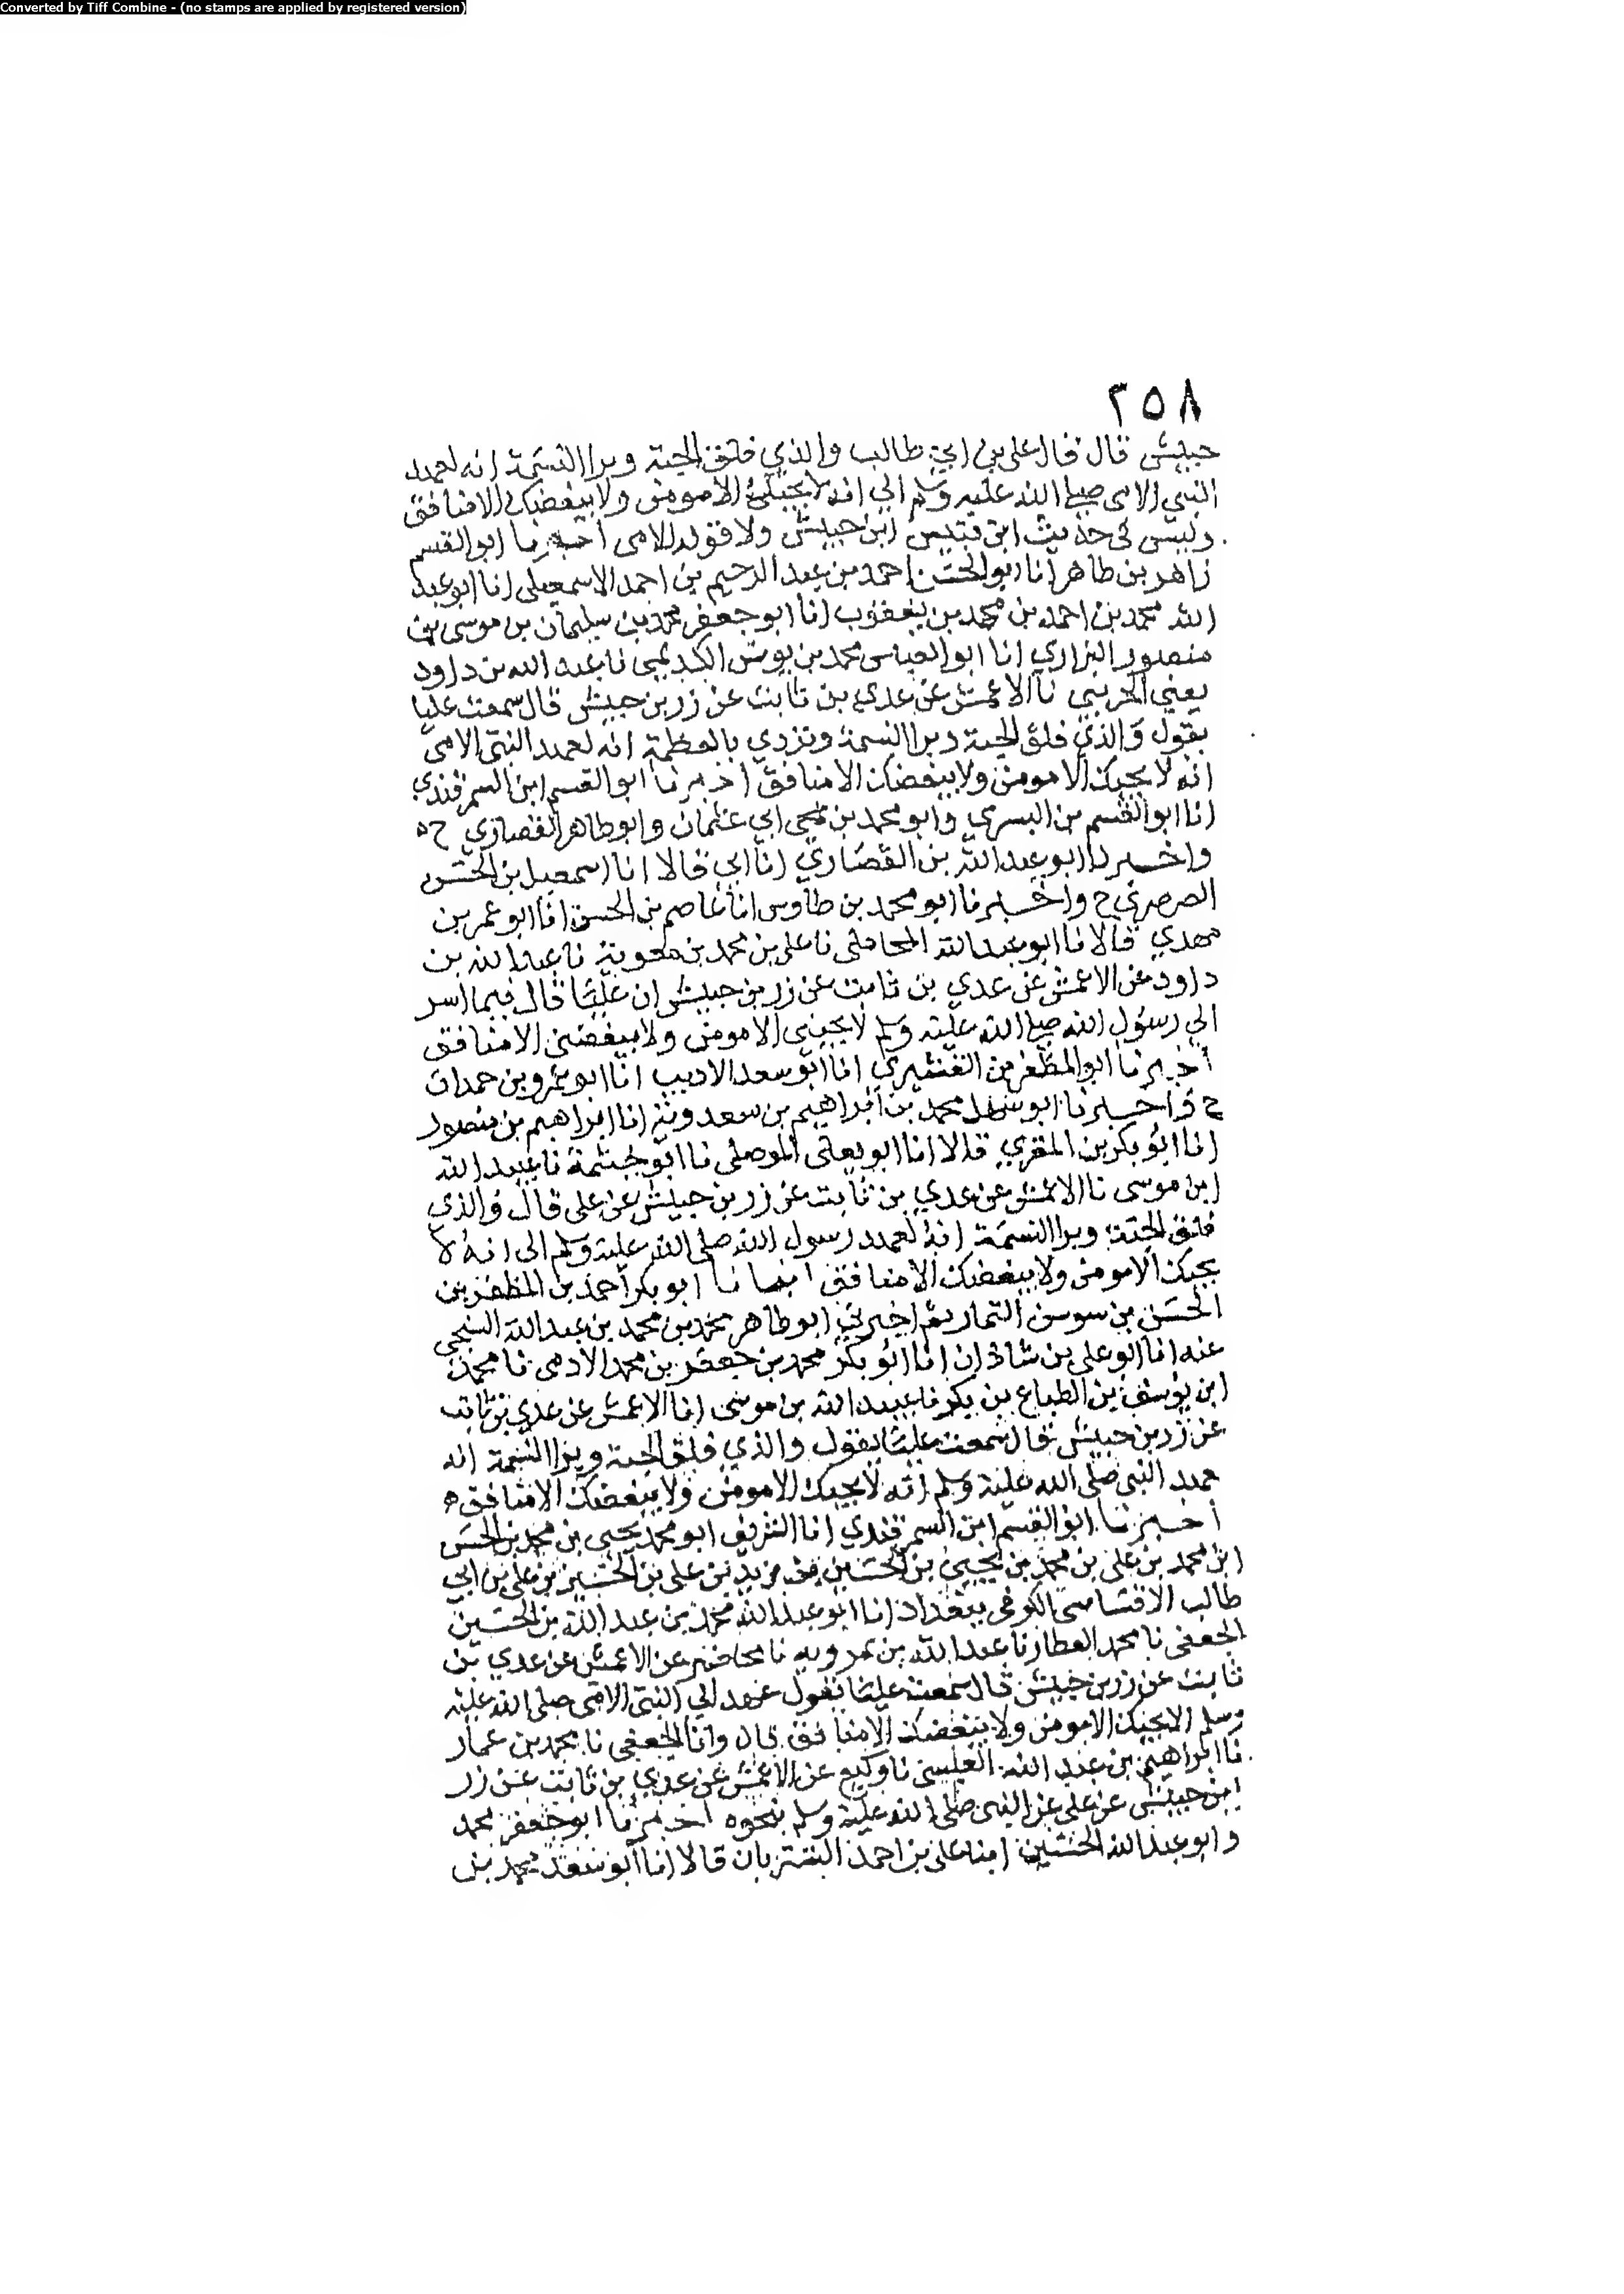 Converted by Tiff Combine - (no stamps are applied by registered version)
٢٥٨
حبيش قال قال على بن ابي طالب والذي فلق الحبة وبرا النسمة انه لعهد
النبي الامى صلى الله عليه وسلم الي انه لا يحبك الا مومن ولا يبغضك الا منافق
وليس في حديث ابن قبيس ابن حبيش ولا قوله الامى اخبرنا ابو القسم
زاهر بن طاهر انا ابو الحسن احمد بن عبد الرحيم بن احمد الاسمعيلى انا ابو عبد
الله محمد بن احمد بن محمد بن يعقوب انا ابو جعفر محمد بن سليمان بن موسى بن
منصور البزاري انا ابو العباس محمد بن يونس الكديمى نا عبد الله بن داود
يعني الخريبي نا الاعمش عن عدي بن ثابت عن زر بن حبيش قال سمعت عليا
يقول والذي فلق الحبة وبرا النسمة وتردي بالعظمة انه لعهد النبى الامى
انه لا يحبك الا مومن ولا يبغضك الا منافق اخبرنا ابو القسم ابن السمرقندي
انا ابو القسم بن البسري وابو محمد بن ابي عثمان وابو طاهر القصاري ح
واخبرنا ابو عبد الله بن القصاري انا ابي قالا انا اسمعيل بن الحسن
الصرصري ح واخبرنا ابو محمد بن طاوس انا عاصم بن الحسن انا ابو عمر بن
مهدي قالا نا ابو عبد الله المحاملى نا على بن محمد بن معوية نا عبد الله بن
داود عن الاعمش عن عدي بن ثابت عن زر بن حبيش ان عليا قال فيما اسر
الي رسول الله صلى الله عليه وسلم لا يحبني الا مومن ولا يبغضني الا منافق
اخبرنا ابو المظفر بن القشيري انا ابو سعد الاديب انا ابو عمرو بن حمدان
ح واخبرنا ابو سهل محمد بن ابراهيم بن سعدوية انا ابراهيم بن منصور
انا ابو بكر بن المقري قالا انا ابو يعلى الموصلى نا ابو خيثمة نا عبيد الله
ابن موسى نا الاعمش عن عدي بن ثابت عن زر بن حبيش عن على قال والذي
فلق الحبة وبرا النسمة انه لعهد رسول الله صلى الله عليه وسلم الى انه لا
يحبك الا مومن ولا يبغضك الا منافق انبانا ابو بكر احمد بن المظفر بن
الحسن بن سوسن التمار ثم اخبرني ابو طاهر محمد بن محمد بن عبد الله السنجى
عنه انا ابو على بن شاذان انا ابو بكر محمد بن جعفر بن محمد الادمى نا محمد
ابن يوسف بن الطباع بن بكر نا عبيد الله بن موسى انا الاعمش عن عدي بن ثابت
عن زر بن حبيش قال سمعت عليا يقول والذي فلق الحبة وبرا النسمة انه
عهد النبى صلى الله عليه وسلم انه لا يحبك الا مومن ولا يبغضك الا منافق ه
اخبرنا ابو القسم ابن السمرقندي انا الشريف ابو محمد يحيى بن محمد بن الحسن
ابن محمد بن على بن محمد بن يحيى بن الحسين بن زيد بن على بن الحسين بن على بن ابي
طالب الاقساسى الكوفى ببغداد انا ابو عبد الله محمد بن عبد الله بن الحسين
الجعفى نا محمد العطار نا عبد الله بن عمرويه نا محاضر عن الاعمش عن عدي بن
ثابت عن زر بن حبيش قال سمعت عليا يقول عهد الي النبى الامى صلى الله عليه
وسلم الا يحبك الا مومن ولا يبغضك الا منافق قال وانا الجعفى نا محمد بن عمار
نا ابراهيم بن عبد الله العبسى نا وكيع عن الاعمش عن عدي بن ثابت عن زر
ابن حبيش عن على عن النبى صلى الله عليه وسلم بنحوه اخبرنا ابو جعفر محمد
وابو عبد الله الحسين ابنا على بن احمد قالا انا ابو سعد محمد بن